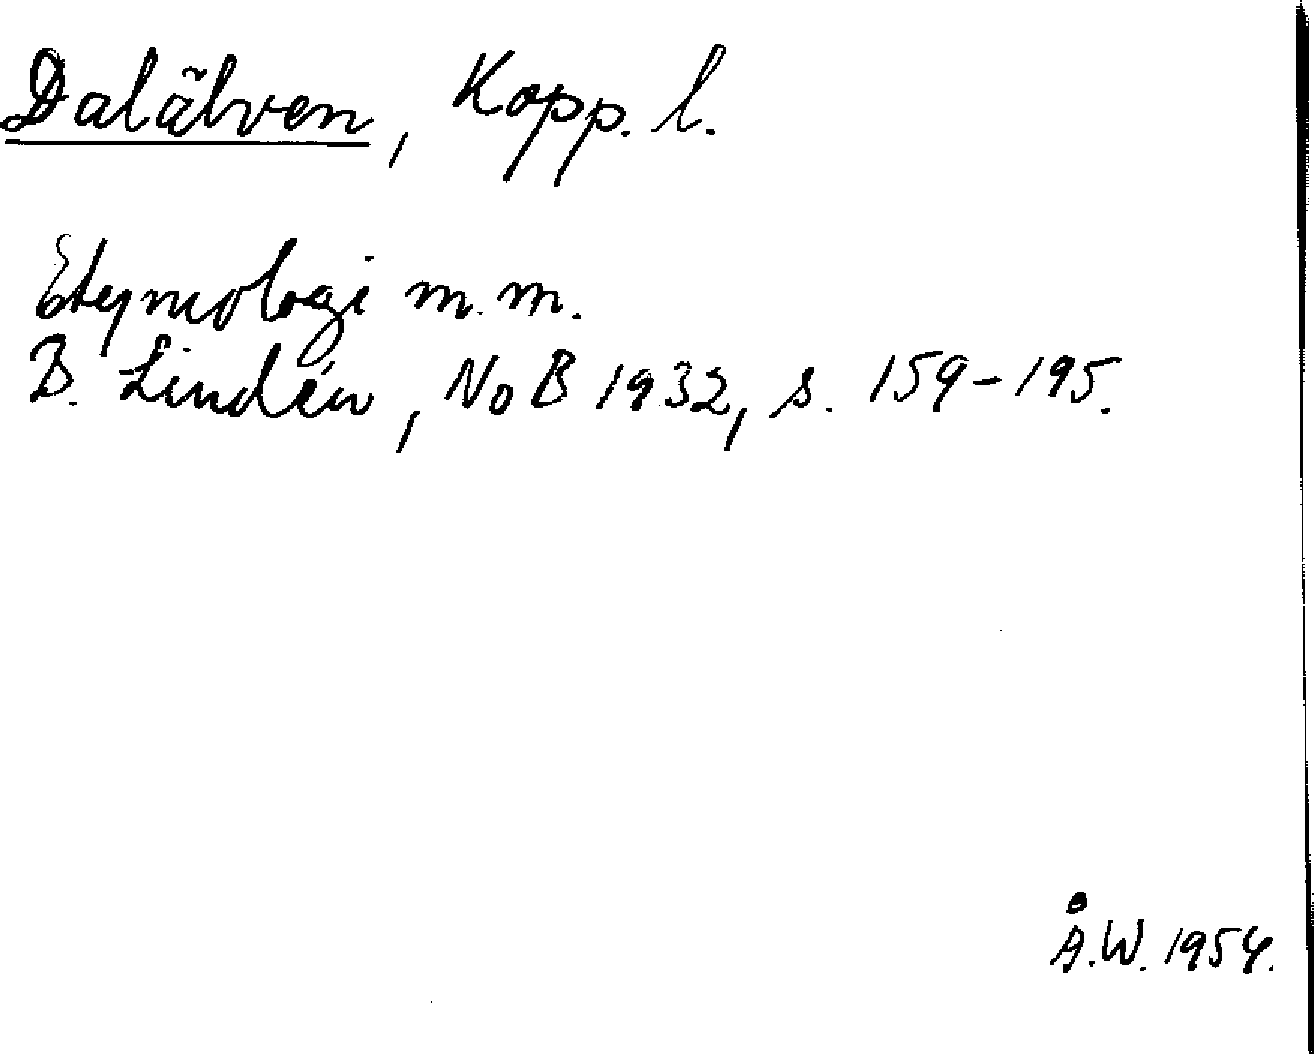 Dalälven, Kopp. l.
Etymologi m.m.
B. Lindén, NoB 1932, s. 159-195.
Å.W. 1954.